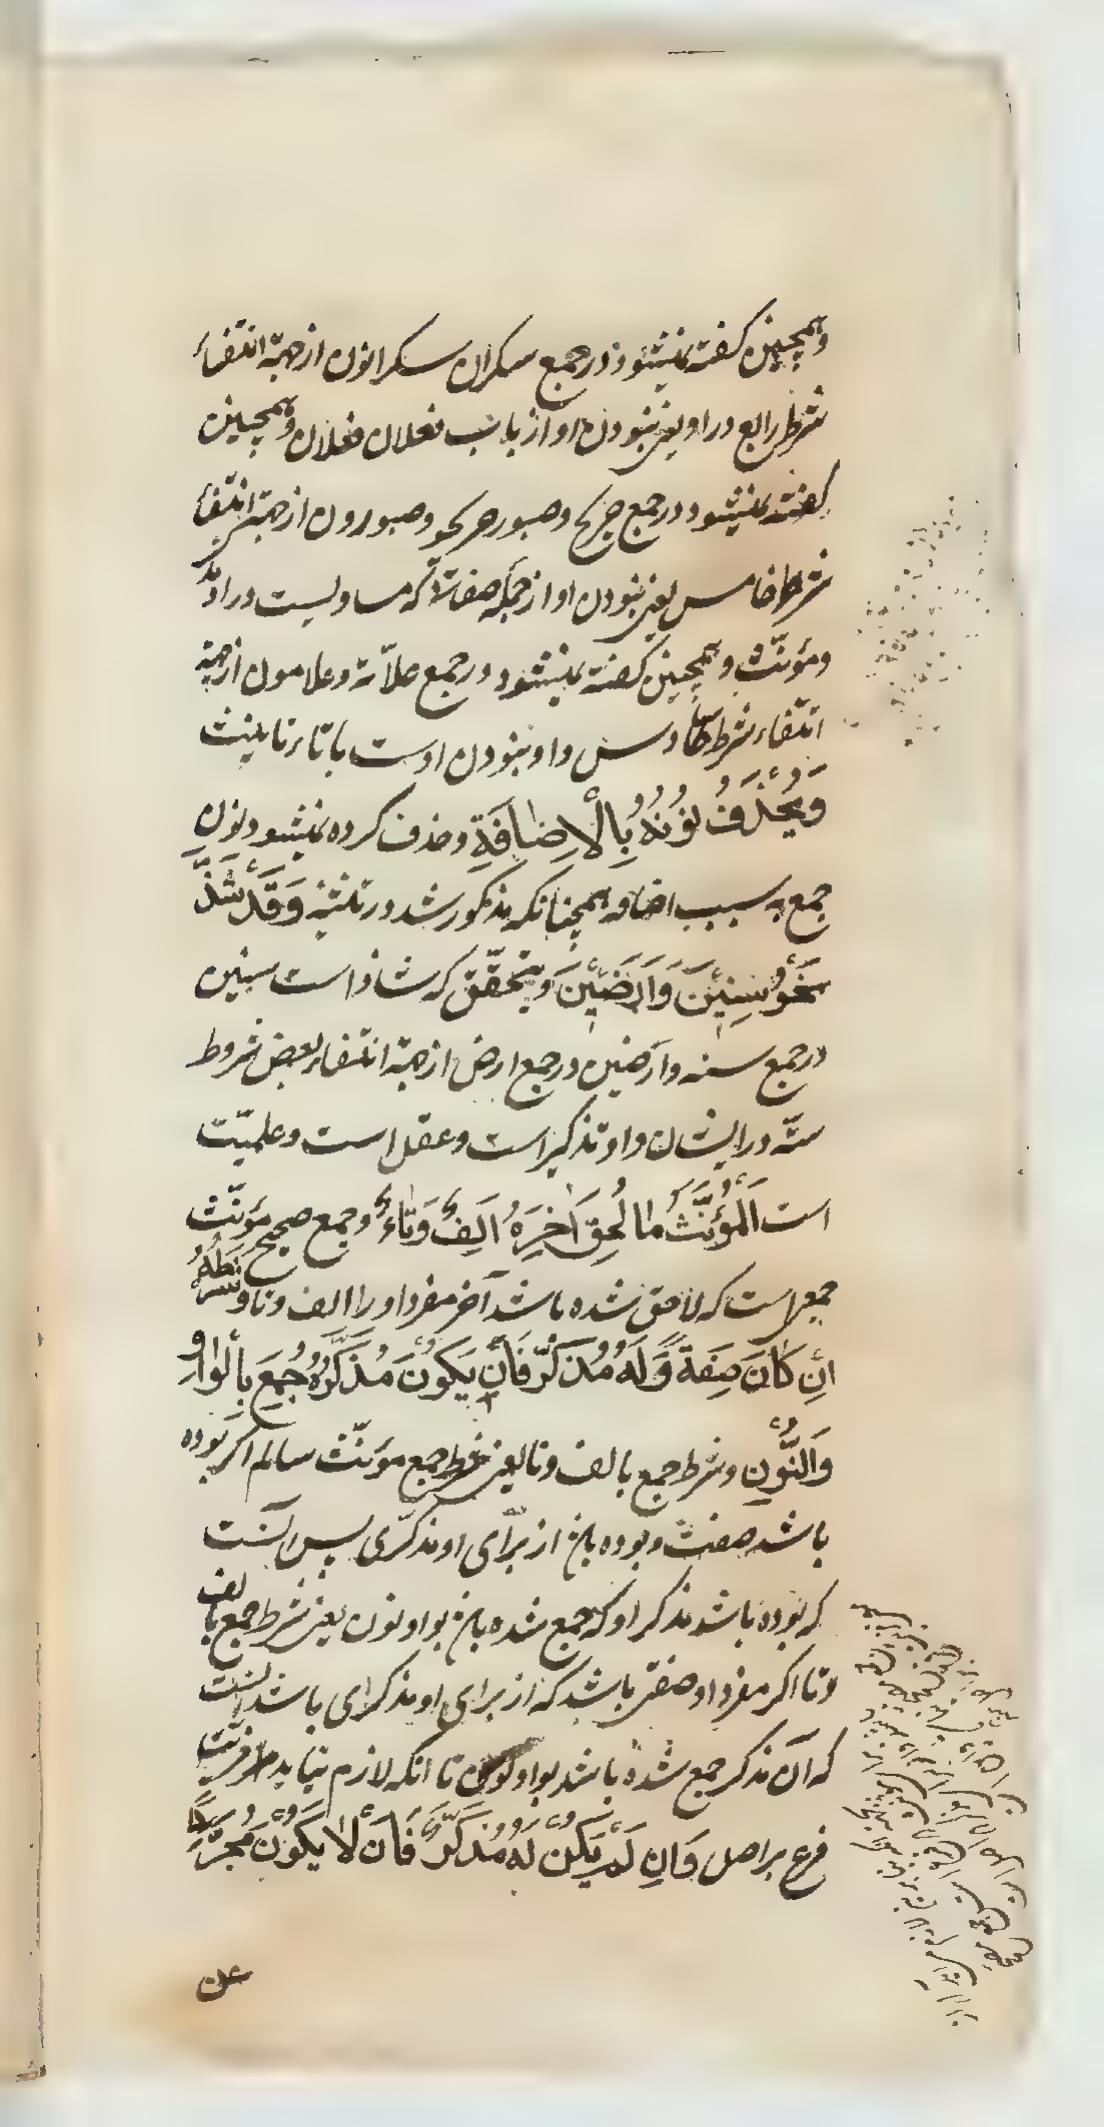 وهمچنین کفته نمیشود در جمع سکران سکرانون از جهة انتفاء
شرط رابع در او یعنی نبودن او از باب فعلان فعلان وهمچنین
کفته نمیشود در جمع جریح وصبور جریحو وصبورون از جهة انتفاء
شرط خامس یعنی نبودن او از جمله صفاتی که مساویست در او مذکر
ومؤنّث وهمچنین کفته نمیشود در جمع علاّمة وعلامون از جهة
انتفاء شرط سادس واو نبودن اوست باتاء تانیث
وَیُحْذَفُ نُوْنُهُ بِالْاِضَافَةِ وحذف کرده میشود نون
جمع به سبب اضافه همچنانکه مذکور شد در تثنیه وَقَدْ شَذَّ
نَحْوُ سِنِیْنَ وَاَرَضِیْنَ وبتحقّق که شاذ است سنین
در جمع سنه وارضین در جمع ارض از جهة انتفاء بعض شروط
ستّه در ایشان واو تذکیر است وعقل است وعلمیّت
است اَلْمُؤَنَّثُ مَا لُحِقَ اٰخِرَهُ اَلِفٌ وَتَاءٌ وجمع صحیح مؤنّث
جمعی است که لاحق شده باشد آخر مفرد او را الف وتا وَشَرْطُهُ
اِنْ کَانَ صِفَةً وَلَهُ مُذَکَّرٌ فَاَنْ یَکُوْنَ مُذَکَّرُهُ جُمِعَ بِالْوَاوِ
وَالنُّوْنِ وشرط جمع بالف وتا یعنی شرط جمع مؤنّث سالم اکر بوده
باشد صفت وبوده باشد از برای او مذکّری پس آنست
که بوده باشد مذکر او که جمع شده باشد بواو ونون یعنی شرط جمع بالف
وتا اکر مفرد او صفتی باشد که از برای او مذکرای باشد آنست
که آن مذکر جمع شده باشد بواو ونون تا انکه لازم نیاید مزیّت
فرع بر اصل وَاِنْ لَمْ یَکُنْ لَهُ مُذَکَّرٌ فَاَنْ لَا یَکُوْنَ مُجَرَّدًا
عن